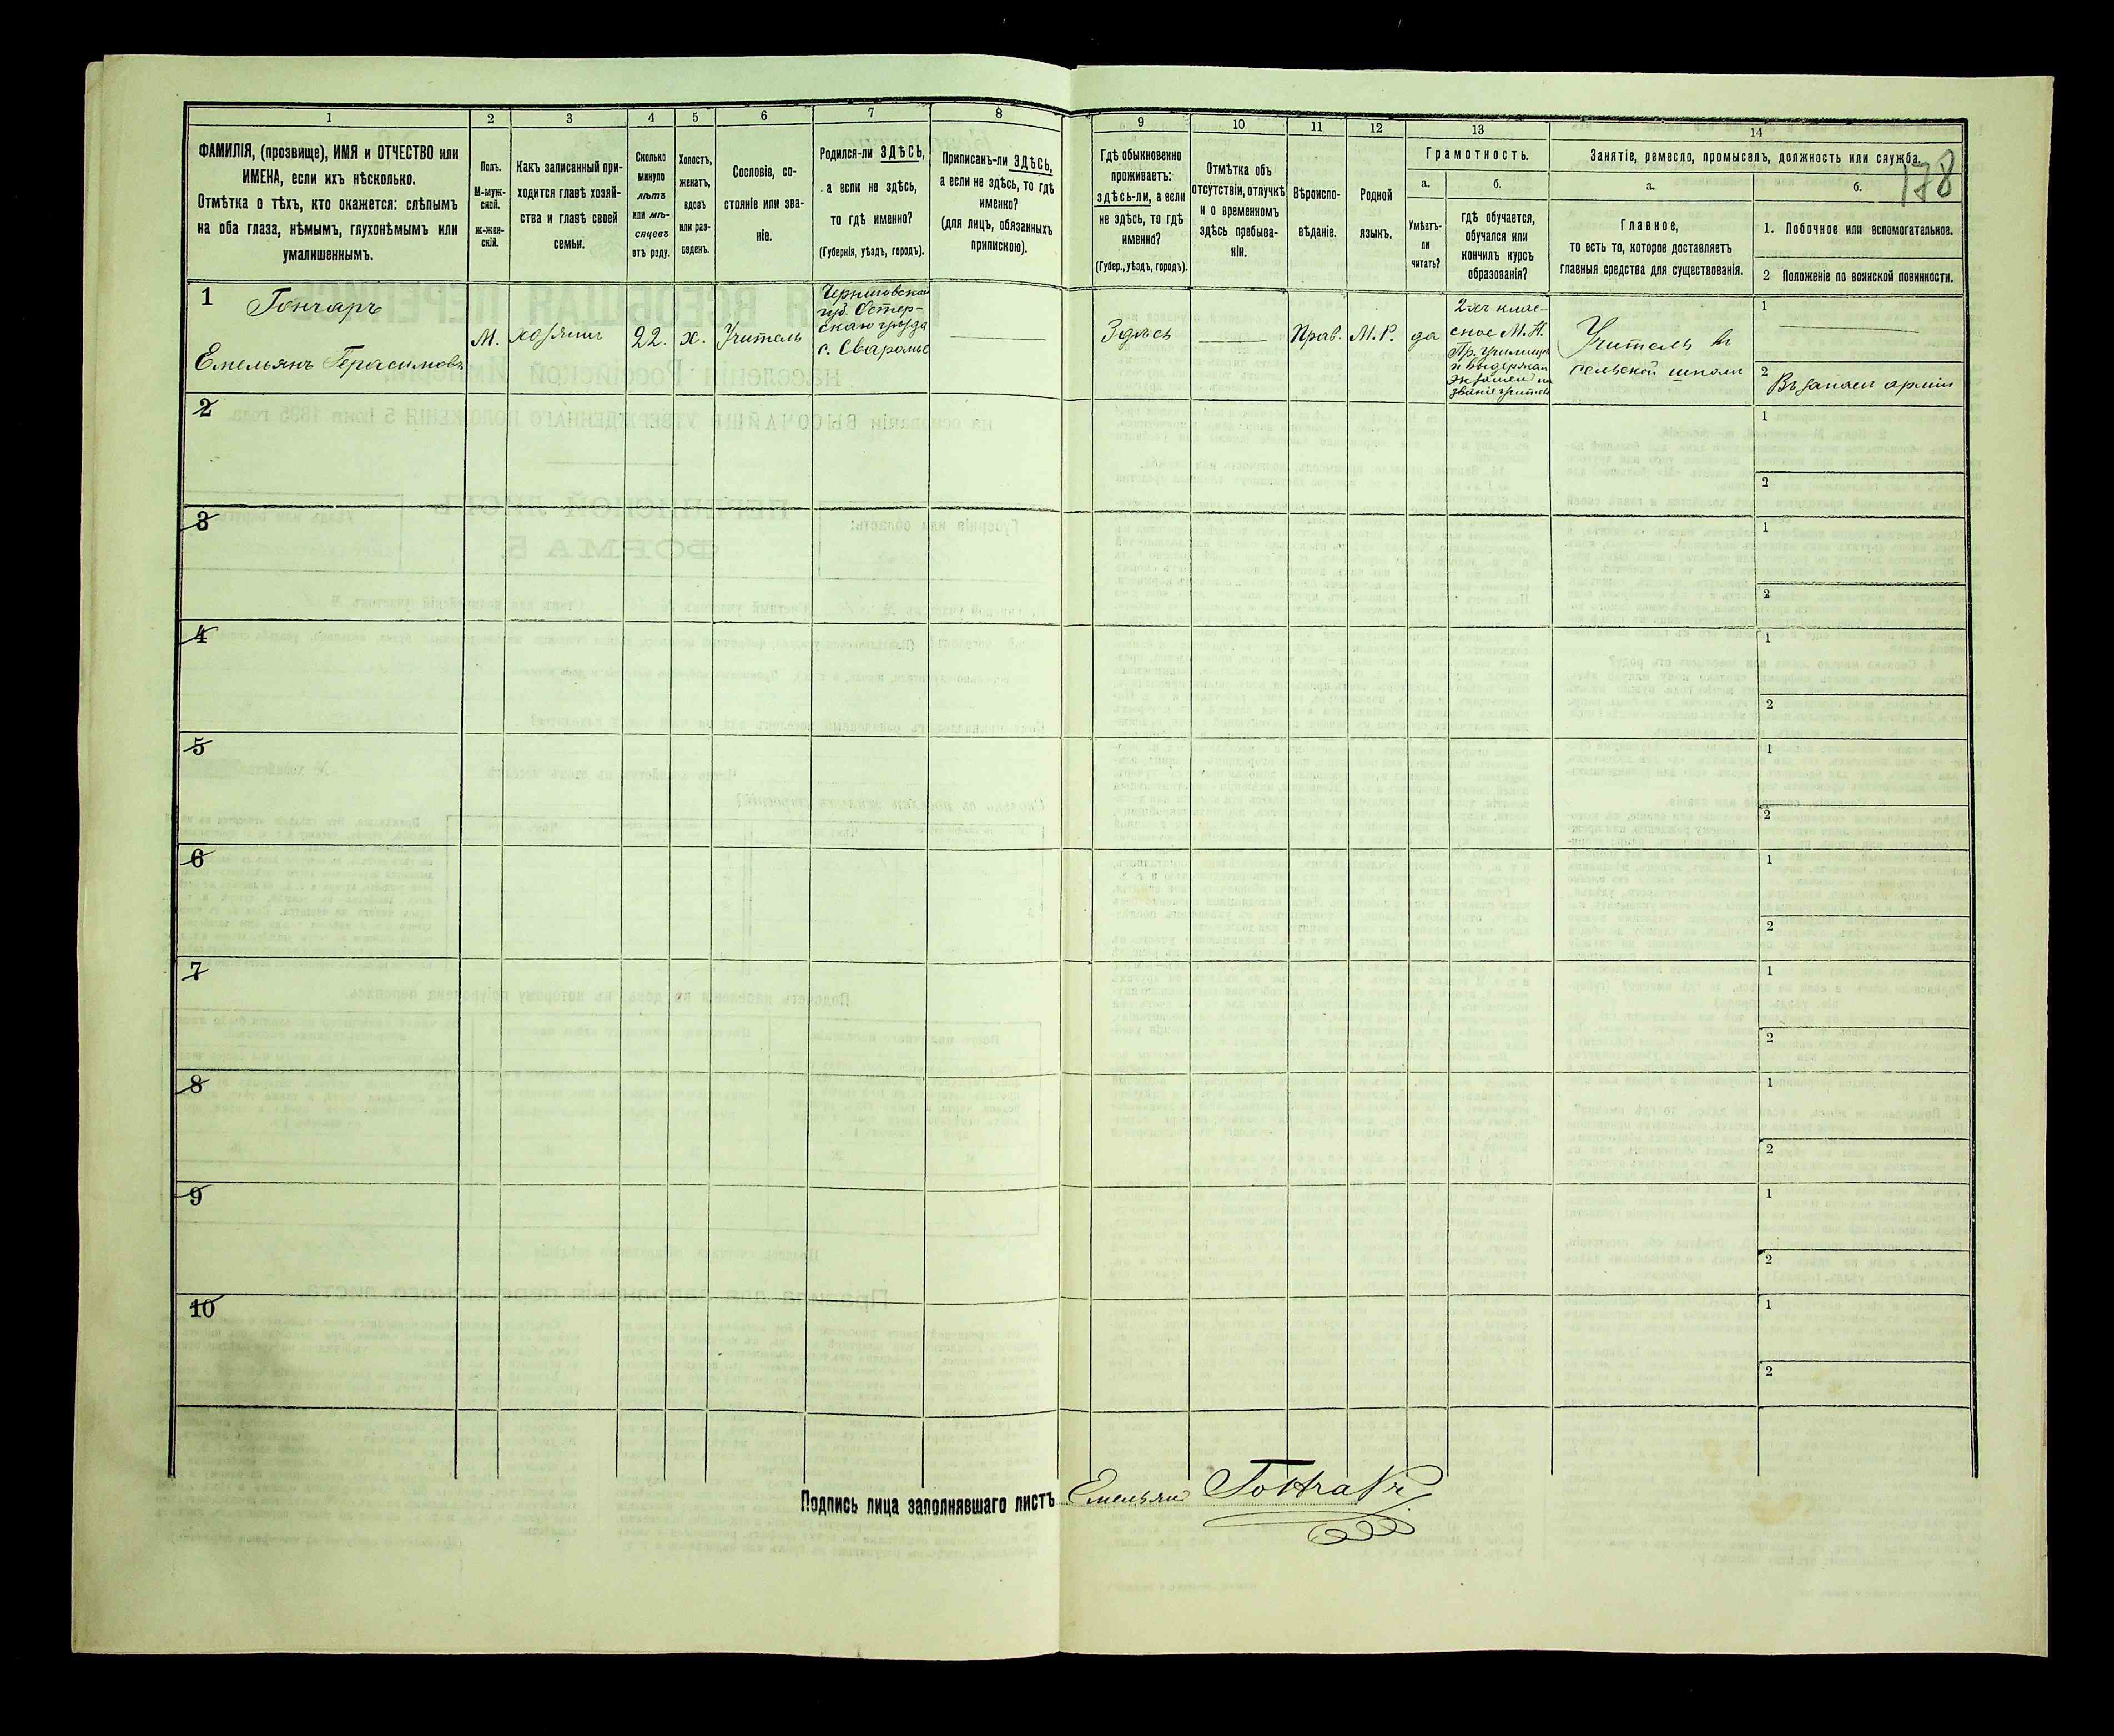 178
1
2
3
4
5
6
7
8
9
10
11
12
13
14
ФАМИЛІЯ, (прозвище), ИМЯ и ОТЧЕСТВО или
ИМЕНА, если ихъ нѣсколько.
Отмѣтка о тѣхъ, кто окажется: слѣпымъ
на оба глаза, нѣмымъ, глухонѣмымъ или
умалишеннымъ.
Полъ.
М-муж-
ской.
Ж-жен-
скій.
Какъ записанный при-
ходится главѣ хозяй-
ства и главѣ своей
семьи.
Сколько
минуло
лѣтъ
или мѣ-
сяцевъ
отъ роду.
Холостъ,
женатъ,
вдовъ
или раз-
веденъ.
Сословіе, со-
стояніе или зва-
ніе.
Родился-ли ЗДѢСЬ,
а если не здѣсь,
то гдѣ именно?
(Губернія, уѣздъ, городъ).
Приписанъ-ли ЗДѢСЬ,
а если не здѣсь, то гдѣ
именно?
(для лицъ, обязанныхъ
припискою).
Гдѣ обыкновенно
проживаетъ:
здѣсь-ли, а если
не здѣсь, то гдѣ
именно?
(Губер., уѣздъ, городъ).
Отмѣтка объ
отсутствіи, отлучкѣ
и о временномъ
здѣсь пребыва-
ніи.
Вѣроиспо-
вѣданіе.
Родной
языкъ.
Грамотность.
а.
Умѣетъ-
ли
читать?
б.
гдѣ обучается,
обучался или
кончилъ курсъ
образованія?
Занятіе, ремесло, промыселъ, должность или служба.
а.
Главное,
то есть то, которое доставляетъ
главныя средства для существованія.
б.
1. Побочное или вспомогательное.
2 Положеніе по воинской повинности.
1
Гончаръ
Емельянъ Герасимовъ
М.
хозяинъ
22.
х.
Учитель
Черниговской
губ. Остер-
скаго уѣзда
с. Сваромье
Здѣсь
Прав.
М.Р.
да
2-хъ клас-
сное М. Н.
Пр. Училище
и выдержал
экзамен на
званіе учителя
Учитель въ
сельской школѣ
1
2
Въ запасѣ арміи
2
1
2
3
1
2
4
1
2
5
1
2
6
1
2
7
1
2
8
1
2
9
1
2
10
1
2
Подпись лица заполнявшаго листъ Емельянъ Гончаръ